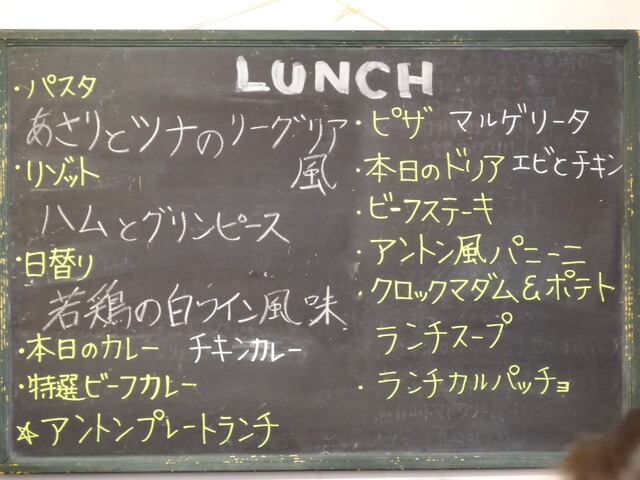 LUNCH
・パスタ
あさりとツナのリーグリア
風
・リゾット
ハムとグリンピース
・日替り
若鶏の白ワイン風味
・本日のカレー チキンカレー
・特選ビーフカレー
☆アントンプレートランチ
・ピザ マルゲリータ
・本日のドリア エビとチキン
・ビーフステーキ
・アントン風パニーニ
・クロックマダム&ポテト
ランチスープ
・ランチカルパッチョ